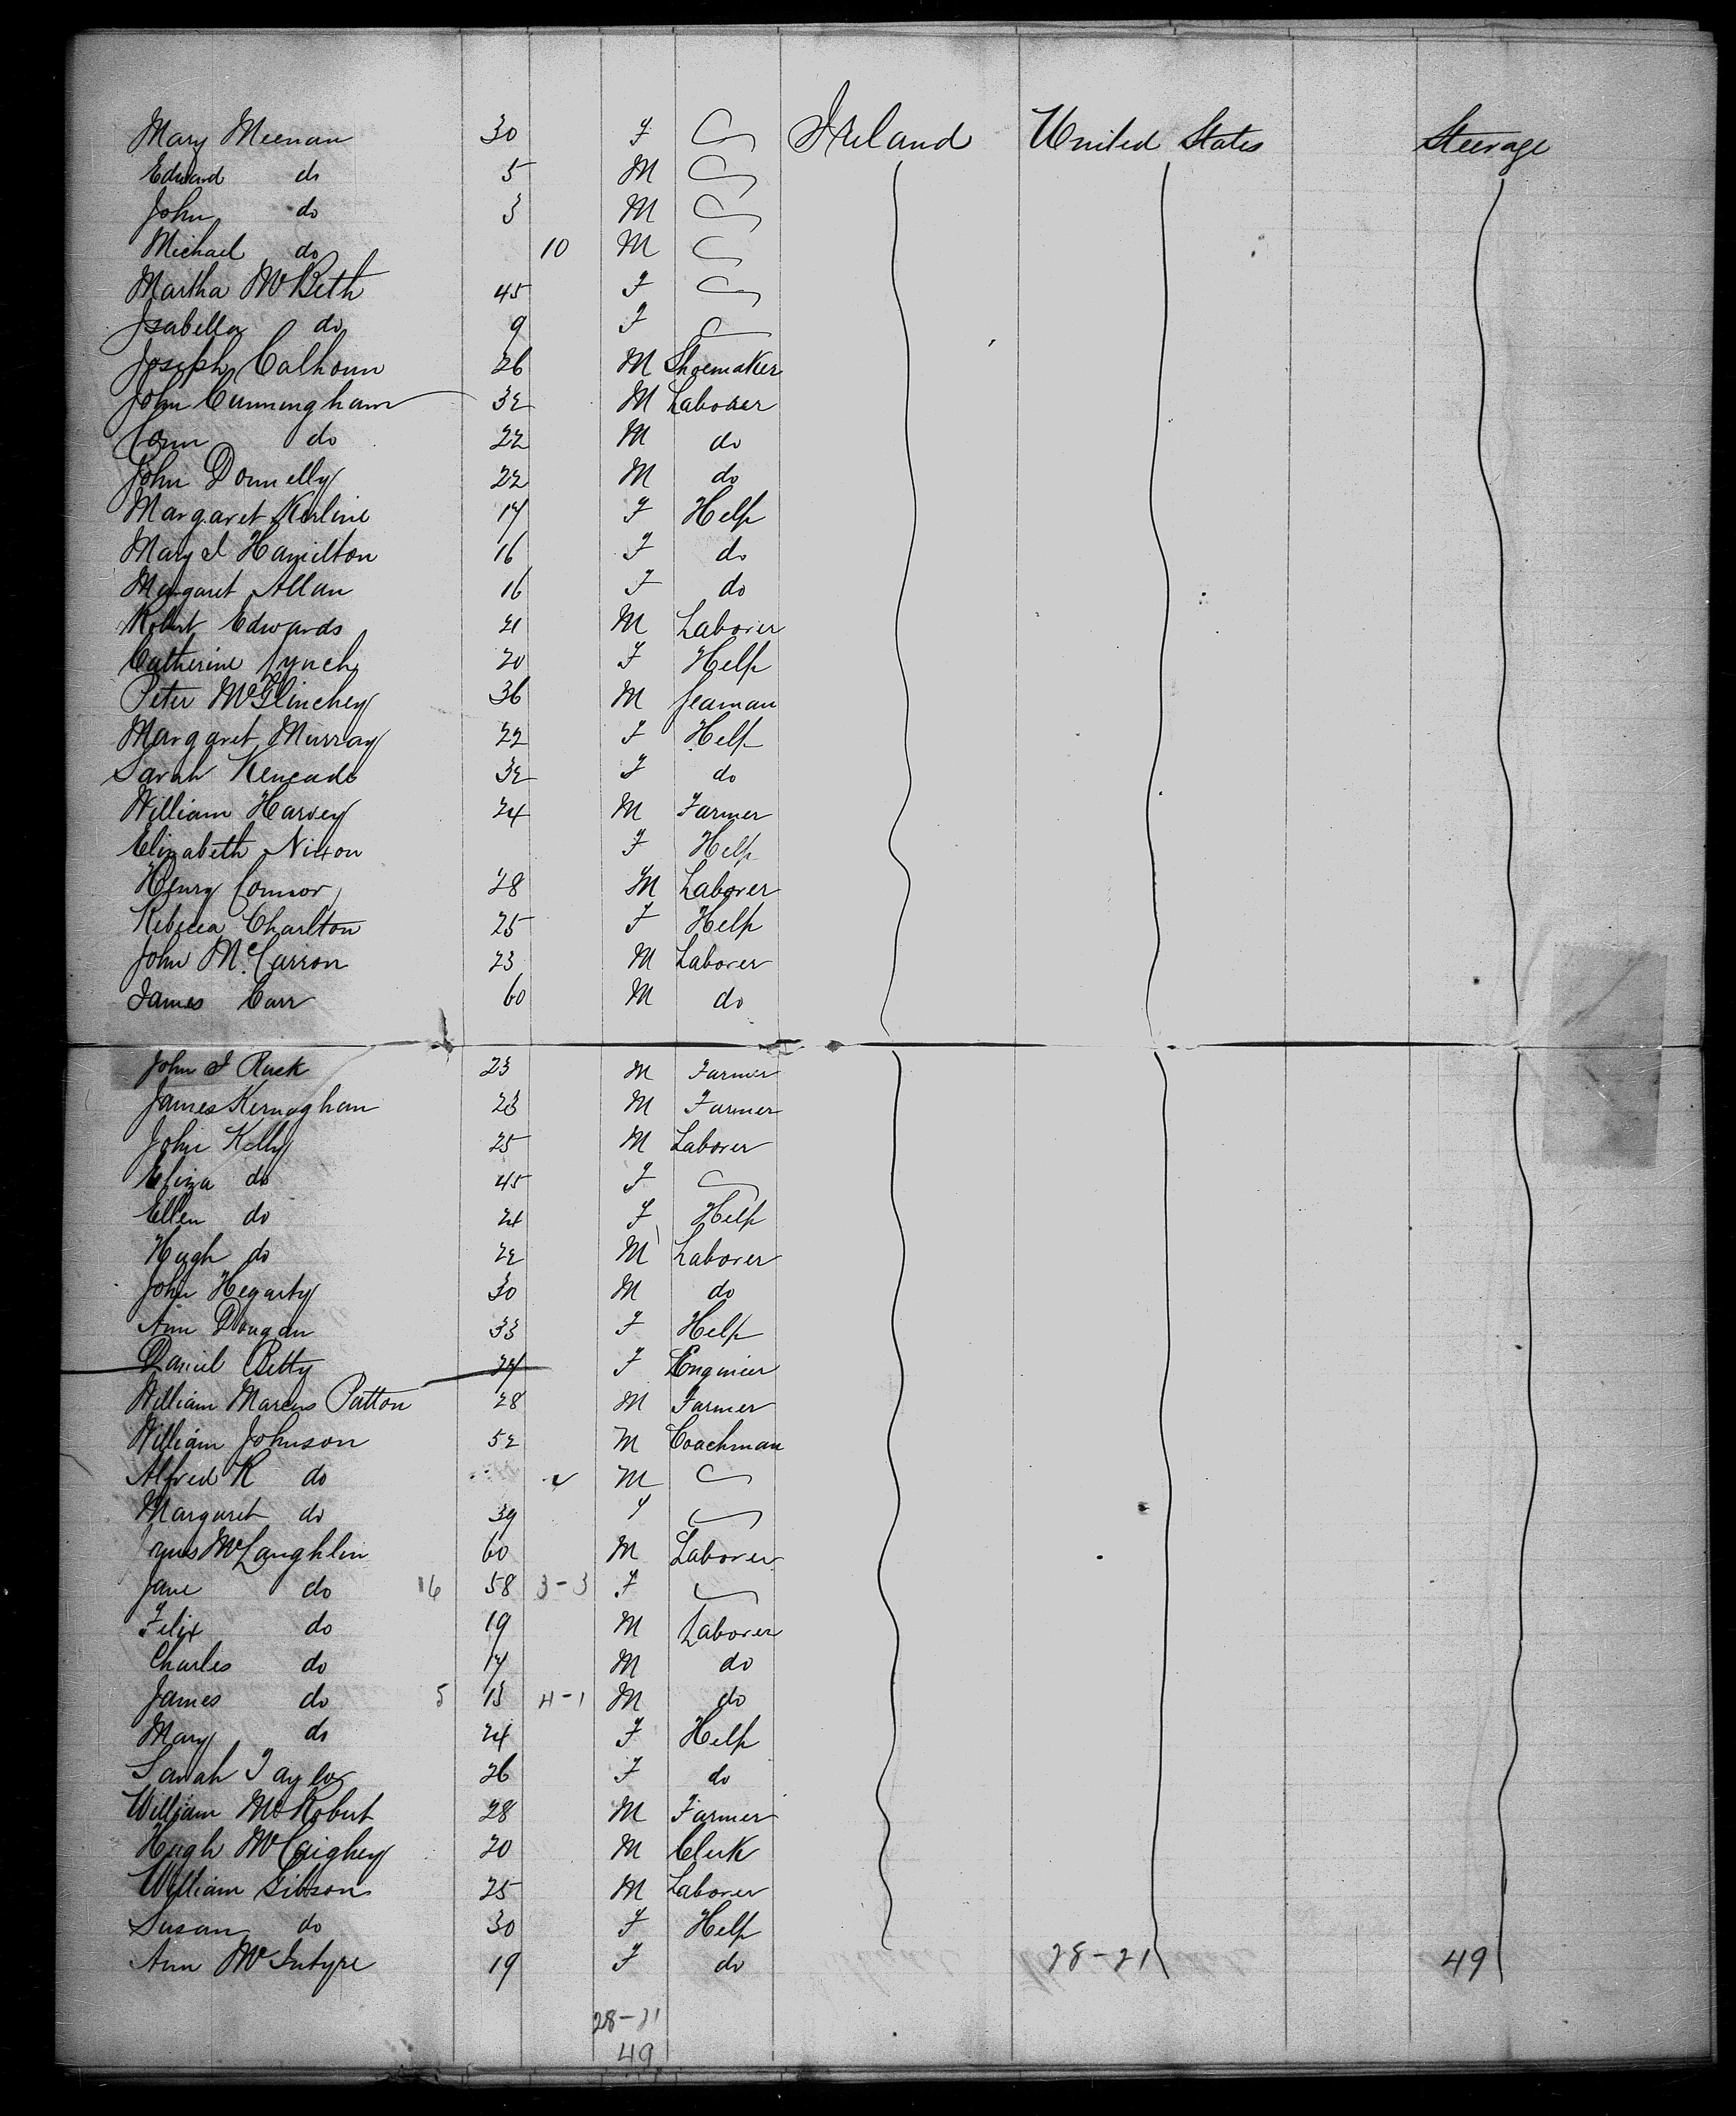 Mary Meenan 30 F Ireland United States Steerage
Edward do 5 M
John do 3 M
Michael do 10 M
Martha McBeth 45 F
Isabella do 9 F
Joseph Calhoun 26 M Shoemaker
John Cunningham 32 M Laborer
Conn do 22 M do
John Donnelly 22 M do
Margaret Kerline 17 F Help
Mary I Hamilton 16 F do
Margaret Allan 16 F do
Robert Edwards 21 M Laborer
Catherine Lynch 20 F Help
Peter McGlinchey 36 M Seaman
Margaret Murray 22 F Help
Sarah Kencade 32 F do
William Harvey 24 M Farmer
Elizabeth Nixon F Help
Henry Connor 28 M Laborer
Rebecca Charlton 25 F Help
John McCarron 23 M Laborer
James Carr 60 M do
John I Rack 23 M Farmer
James Kernaghan 23 M Farmer
John Kelly 25 M Laborer
Eliza do 45 F
Ellen do 24 F Help
Hugh do 22 M Laborer
John Hegarty 30 M do
Ann Dougan 33 F Help
Daniel Betty 24 F Engineer
William Marcus Patton 28 M Farmer
William Johnson 52 M Coachman
Alfred R do M
Margaret do 39 F
McLaughlin 60 M Laborer
Jane do 16 58 3-3 F
Felix do 19 M Laborer
Charles do 17 M do
James do 5 13 4-1 M do
Mary do 24 F Help
Sarah Taylor 26 F do
William McRobert 28 M Farmer
Hugh McCaighey 20 M Clerk
William Gibson 25 M Laborer
Susan do 30 F Help
Ann McIntyre 19 F do 28-21 49
28-21
49